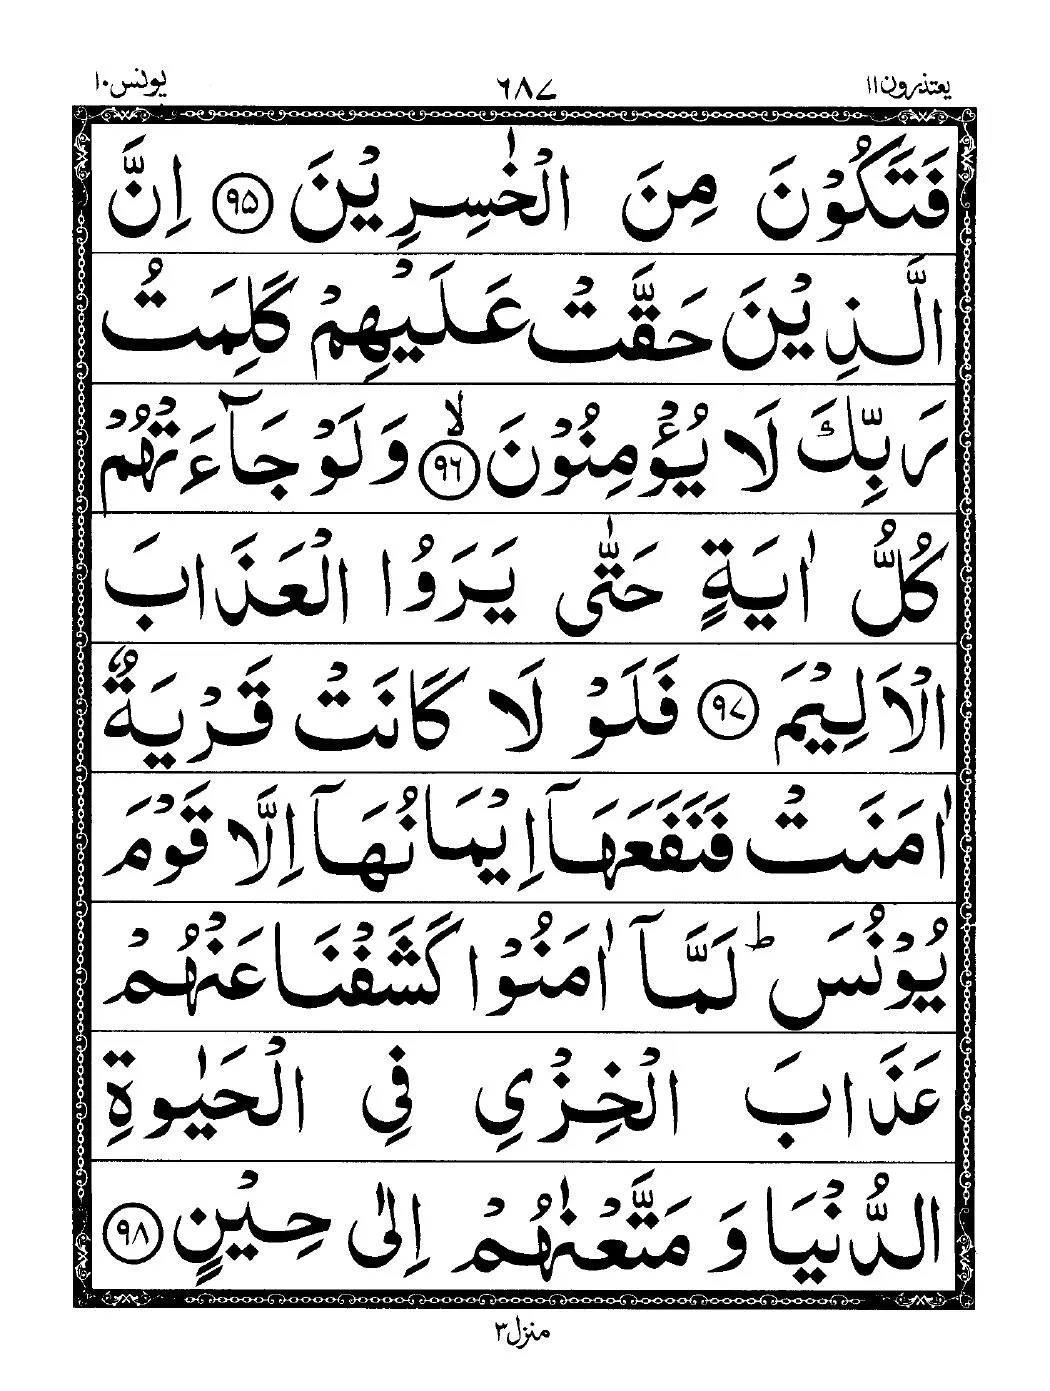 يعتذرون ١١ ٦٨٧ يونس ١٠
فَتَكُوْنَ مِنَ الْخٰسِرِيْنَ ﴿٩٥﴾ اِنَّ
الَّذِيْنَ حَقَّتْ عَلَيْهِمْ كَلِمَتُ
رَبِّكَ لَا يُؤْمِنُوْنَ ﴿٩٦﴾ۙ وَلَوْ جَآءَتْهُمْ
كُلُّ اٰيَةٍ حَتّٰى يَرَوُا الْعَذَابَ
الْاَلِيْمَ ﴿٩٧﴾ فَلَوْ لَا كَانَتْ قَرْيَةٌ
اٰمَنَتْ فَنَفَعَهَاۤ اِيْمَانُهَاۤ اِلَّا قَوْمَ
يُوْنُسَ ؕ لَمَّاۤ اٰمَنُوْا كَشَفْنَا عَنْهُمْ
عَذَابَ الْخِزْىِ فِى الْحَيٰوةِ
الدُّنْيَا وَ مَتَّعْنٰهُمْ اِلٰى حِيْنٍ ﴿٩٨﴾
منزل ٣